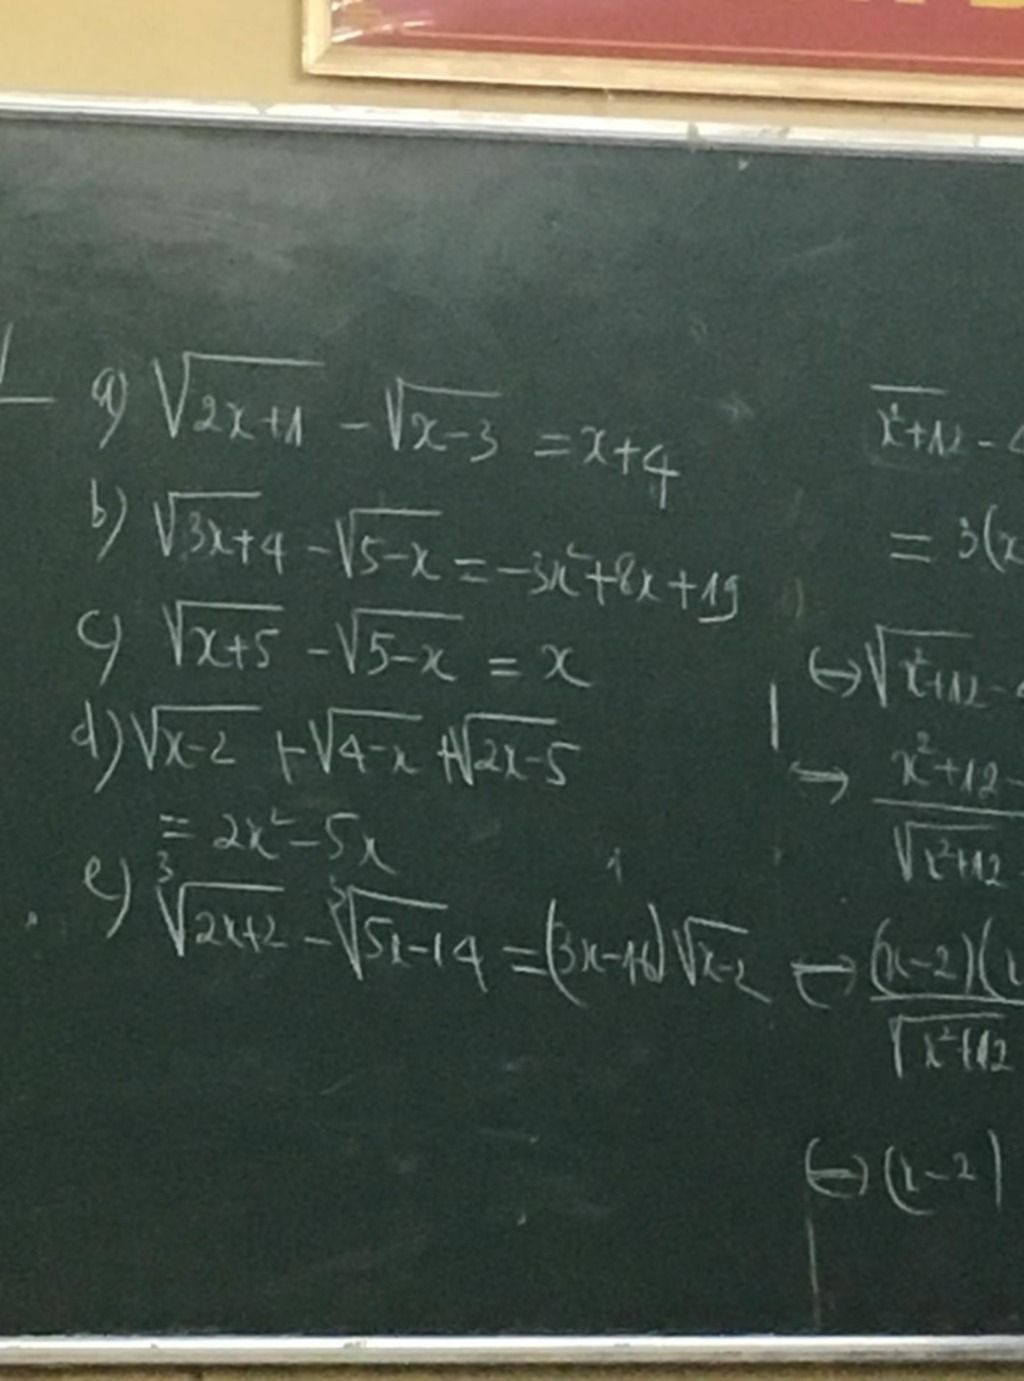 a) √(2x+1) - √(x-3) = x+4
b) √(3x+4) - √(5-x) = -3x²+8x+19
c) √(x+5) - √(5-x) = x
d) √(x-2) + √(4-x) + √(2x-5)
= 2x²-5x
e) ∛(2x+2) - ∛(5x-14) = (3x-16)√(x-2)
x²+12 - 4
= 3(x
⇔ √(x²+12) -
→ x²+12 -
√(x²+12)
⇔ (x-2)(
√(x²+12)
⇔ (x-2)